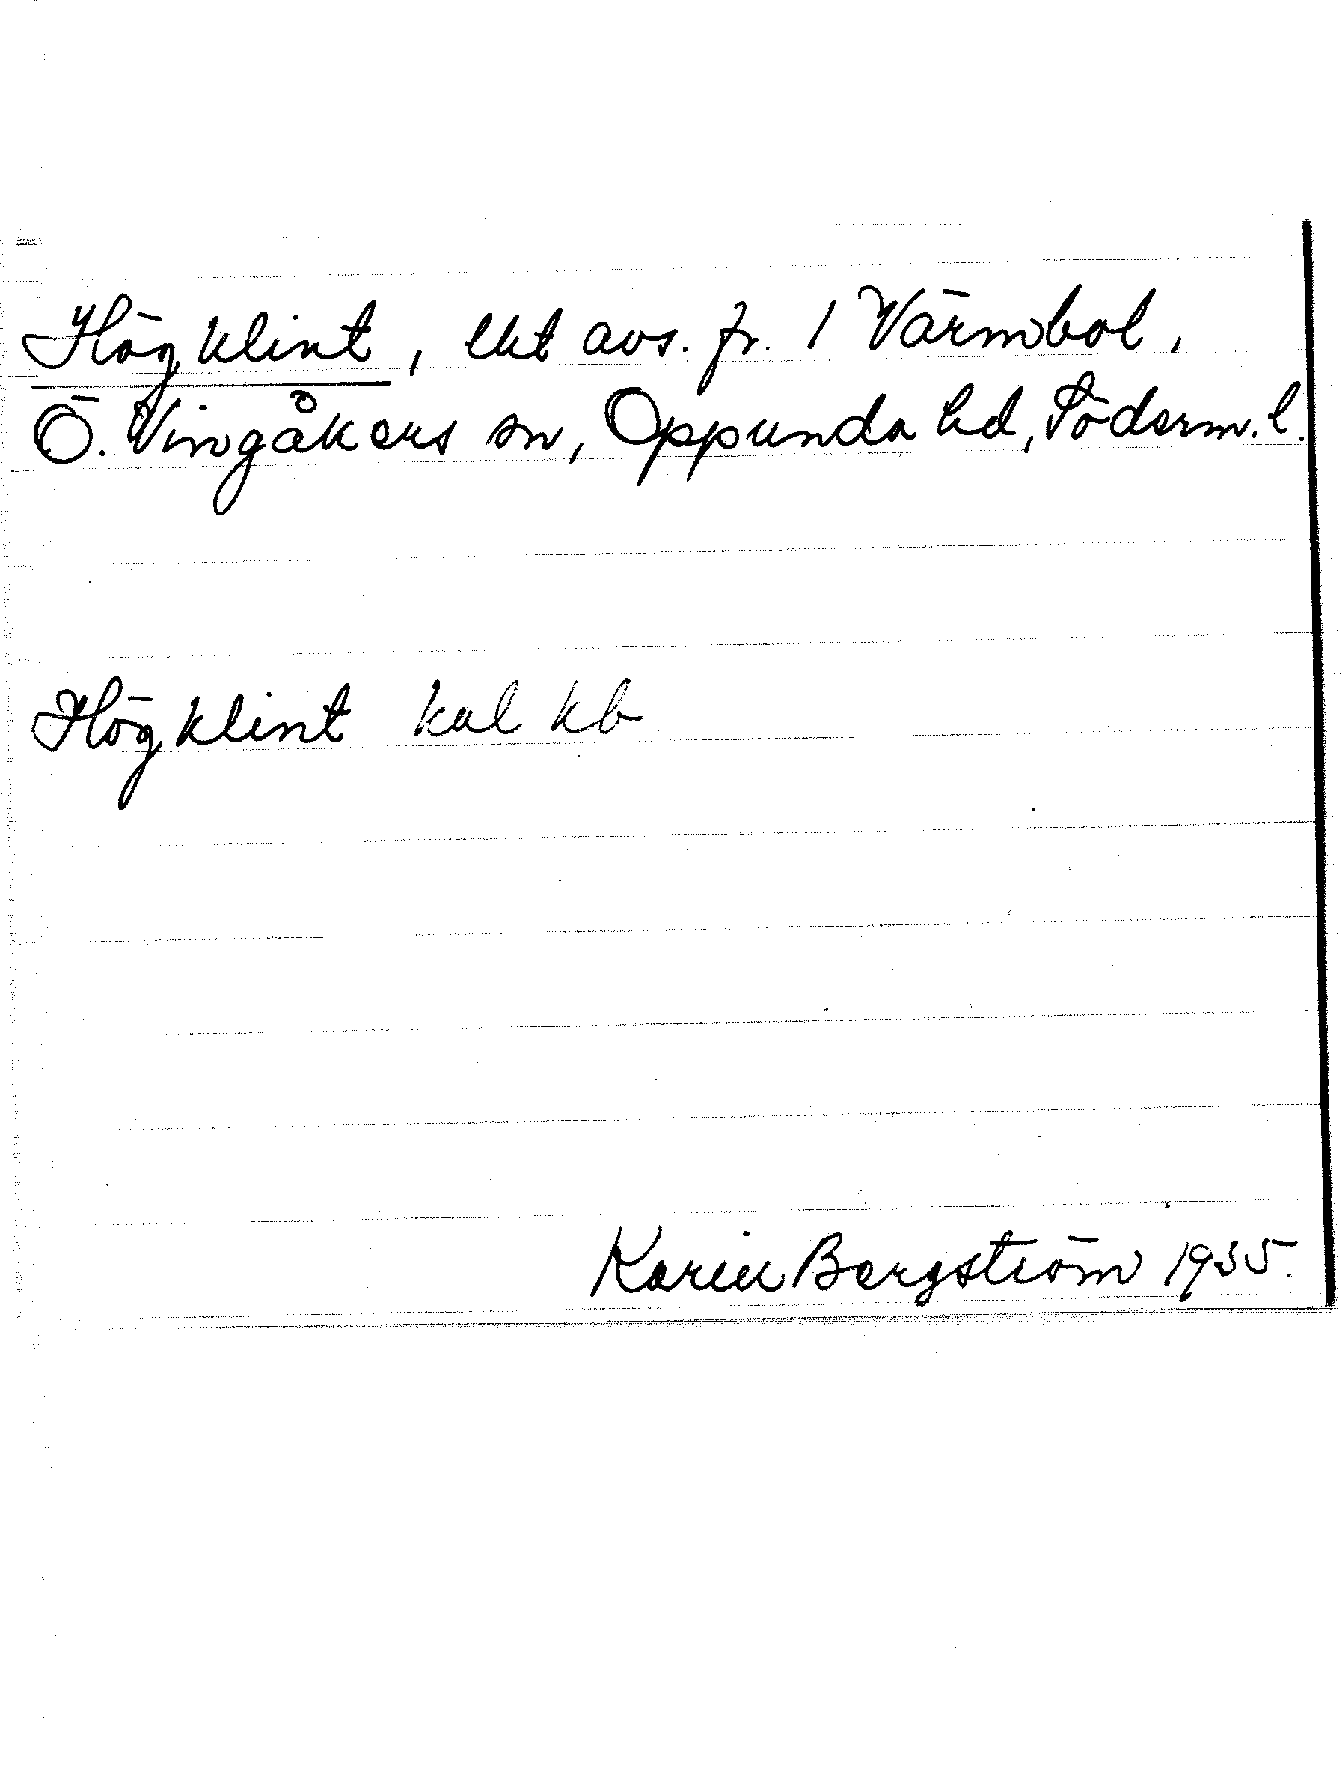 Högklint, lht avs. fr. 1 Värmbol,
Ö. Vingåkers sn, Oppunda hd, Söderm. l.
Högklint kal kb
Karin Bergström 1935.